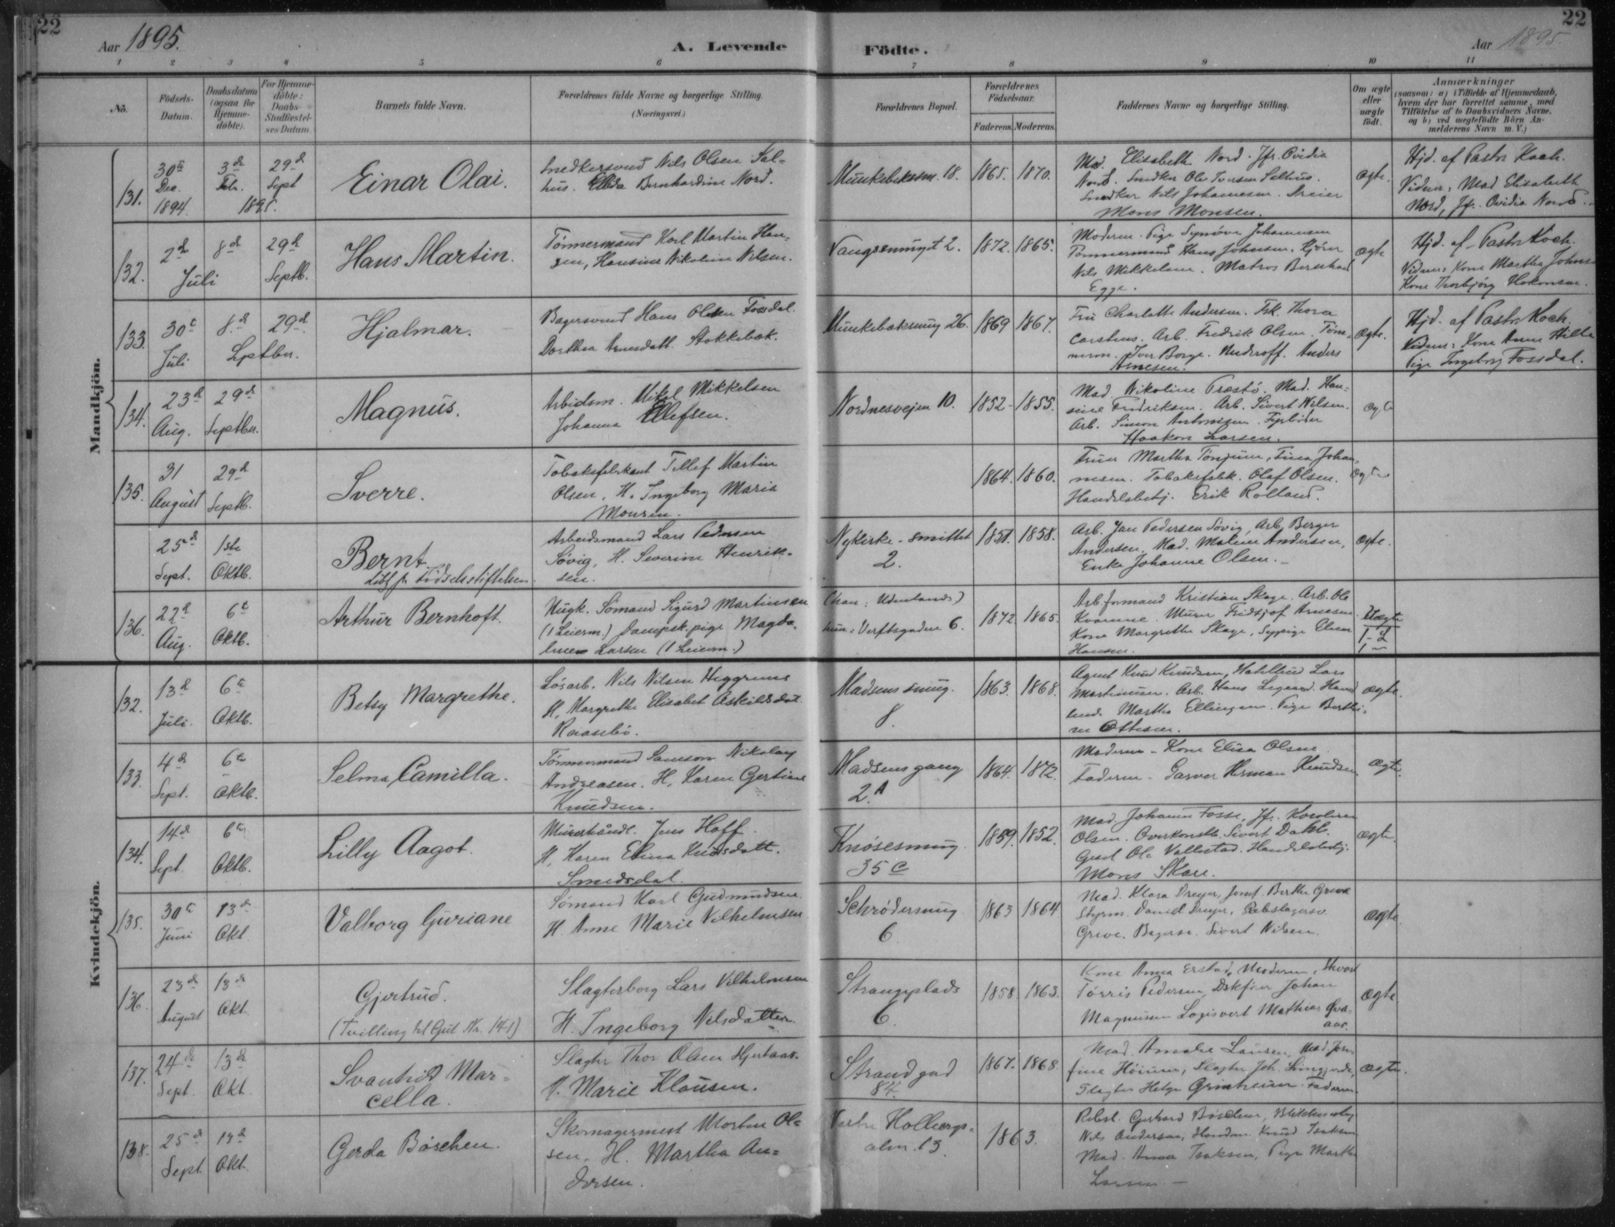 22
Aar 1895.
A. Levende
Födte.
Aar 1895.
22
1 2 3 4 5 6 7 8 9 10 11
No.
Födsels-
Datum.
Daabsdatum
(ogsaa for
Hjemme-
döbte).
For Hjemme-
döbte:
Daabs-
Stadfæstel-
ses Datum
Barnets fulde Navn.
Forældrenes fulde Navne og borgerlige Stilling.
(Næringsvei.)
Forældrenes Bopæl.
Forældrenes
Födselsaar.
Faderens.
Moderens.
Faddernes Navne og borgerlige Stilling.
Om ægte
eller
uægte
födt.
Anmærkninger
(saasom: a) i Tilfælde af Hjemmedaab,
hvem der har forrettet samme, med
Tilföielse af to Daabsvidners Navne,
og b) ved uægtefödte Börn An-
melderens Navn m. V.)
Mandkjön.
131.
30te
Dec.
1894
3die
Febr.
1895.
29de
Sept
Einar Olai.
Snedkersvend Nils Olsen Sal-
hus. Bernhardine Nord.
Munkebeksm. 18.
1865. 1870.
Mad. Elisabeth Nord. Jfr. Ovidia
Nord. Snedker Ole Iversen
Snedker Nils Johannesen.
Mons Monsen.
ægte.
Hjd. af Pastor Koch.
Vidner: Mad Elisabeth
Nord, Jfr. Ovidia Nord.
132.
2de
Juli
8de
29de
Septb.
Hans Martin.
Tömmermand Karl Martin Han-
sen, Hansine Nikoline Nilsen.
Vaugssmuget 2.
1872. 1865.
Moderen. Pige Synöve Johannesen
Tömmermand Hans Johnsen.
Nils Mikkelsen. Matros Bernhard
Egge.
ægte
Hjd. af Pastor Koch.
Vidner: Kone Martha Johns
Kone Thorbjörg Hokonsen.
133.
30te
Juli
8de
Septber.
29de
Hjalmar.
Bagersvend Hans Olsen Fossdal.
Dorthea Arnesdatt. Stokkebak.
Munkebeksmug 26.
1869 1867.
Fru Charlotte Andersen. Frk. Thora
Carstens. Arb. Fredrik Olsen. Töm-
merm. Iver Borge. Underoff. Anders
Arnesen.
ægte.
Hjd. af Pastor Koch
Vidner: Kone Anne Hille
Pige Ingeborg Fossdal.
134.
23de
Aug.
29de
Septber.
Magnus.
Arbeidsm. Mikal Mikkelsen
Johanna Ellefsen.
Nordnesveien 10.
1852- 1855.
Mad Nikoline Præstö. Mad. Han-
sine Fredriksen. Arb. Sivert Nilsen.
Arb. Simon Antonisen. Fyrböter
Haakon Larsen.
ægte
135.
31
August
29de
Septb.
Sverre.
Tobaksfabrikant Tellef Martin
Olsen, H. Ingeborg Maria
Monsen.
1864. 1860.
Fruer Martha Tönjum, Johan-
nesen. Tobaksfabk. Olaf Olsen.
Handelsbetj. Erik Rolland.
ægte
25de
Sept.
1ste
Oktb.
Bernt
Födselsstiftelsen
Arbeidsmand Lars Pedersen
Sövig, H. Severine Henrik-
sen.
Nykirke-smittet
2.
1851. 1858.
Arb. Jan Pedersen Sövig, Arb. Berger
Andersen, Mad. Malene Andersen,
Enke Johanne Olsen. -
ægte.
136.
22de
Aug.
6te
Oktb.
Arthur Bernhoft.
Ungk. Sömand Sigurd Martinsen
(1 Leierm.) Dampsk.pige Magda-
lene Larsen (1 Leierm.)
(han: Udenlands)
hun: Verftsgaden 6.
1872 1865.
Arb.formand Kristian Skage. Arb. Ole
Kvamme. Murer Fridtjof Arnesen
Kone Margrethe Skage, Sypige Elen
Hansen.
Uægte
1-1
Kvindekjön.
132.
13de
Juli.
6te
Oktb.
Betsy Margrethe.
Lösarb. Nils Nilsen Heggenes
H. Margrethe Elisabet Askildsdat
Raasebö.
Madsens smug.
8.
1863. 1868.
Agent Knud Knudsen, Lars
Martinsen. Arb. Hans Legaard. Hand
Martha Ellingsen. Pige Berthi-
ne Ottesen.
ægte.
133.
4de
Sept.
6te
Oktb.
Selma Camilla.
Tömmermand Samson Nikolay
Andreasen. H. Karen Gertine
Knudsen.
Madsens gang
2.A
1864. 1872.
Moderen - Kone Elisa Olsen.
Faderen. Garver Herman Knudsen
ægte.
134.
14de
Sept.
6te
Oktb.
Lilly Aagot.
Murerhåndl. Jens Hoff.
H. Karen Elina Knudsdatt.
Smedsdal
Knösesmug.
35 C
1859. 1852.
Mad Johanne Fosse. Jfr.
Olsen. Overkonst. Sivert Dahl.
Ole Vallestad. Handelsbetj.
Mons Skare.
ægte.
135.
30te
Juni
13de
Okt
Valborg Guriane
Sömand Karl Gudmundsen
H. Anne Marie Vilhelmsen
Schrödersmug
6
1863 1864
Mad. Klara Dreyer, Josef. Berthe Greve
Styrm. David Dreyer, Rebslagersv.
Greve. Bagersv. Sivert Nilsen.
ægte.
136.
23de
August
13de
Okt.
Gjertrud.
(Tvilling til Gut Nr. 141)
Slagterborg Lars Vilhelmsen
H. Ingeborg Nilsdatter
Strangeplads
6.
1858. 1863.
Kone Anna Erstad, Moderen,
Törris Pedersen, Johan
Magnussen Mathias
aas.
ægte
137.
24de
Sept.
13de
Okt
Svanhid Mar-
cella.
Slagter Thor Olsen Hjertaas.
H. Marie Klausen.
Strandgad
84.
1867. 1868
Mad. Amalie Lausen, Mad. Jose-
fine Slagter Joh.
Slagter Helge Grimheim. Faderen
ægte.
138.
25de
Sept.
13de
Okt.
Gerda Böschen.
Skomagermest Morten Ol-
sen, H. Martha An-
dersen.
Vestre Holbergs-
alm. 13.
1863.
Rebsl. Gerhard Böschen,
Nils Andersen, Knud Isaksen
Mad. Anna Isaksen, Pige Marthe
Larsen -